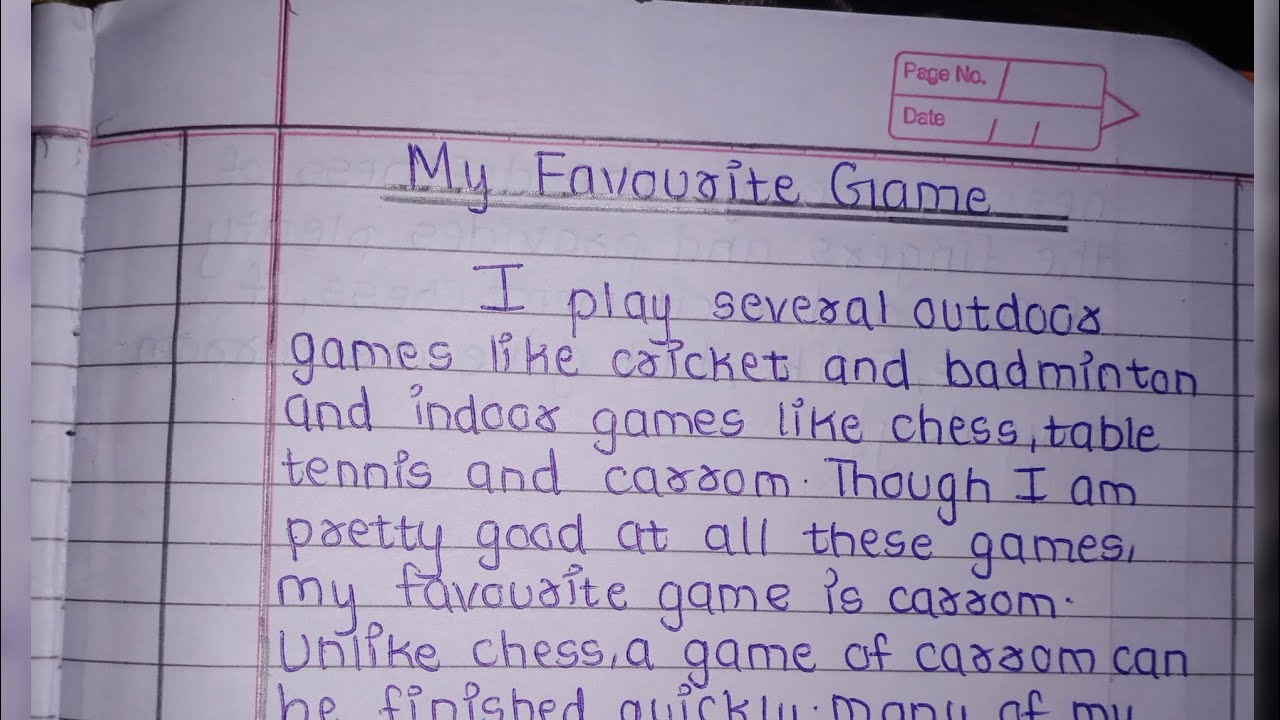 Page No.
Date / /
My Favourite Game
I play several outdoor
games like cricket and badminton
and indoor games like chess, table
tennis and carrom. Though I am
pretty good at all these games,
my favourite game is carrom.
Unlike chess, a game of carrom can
be finished quickly. many of my